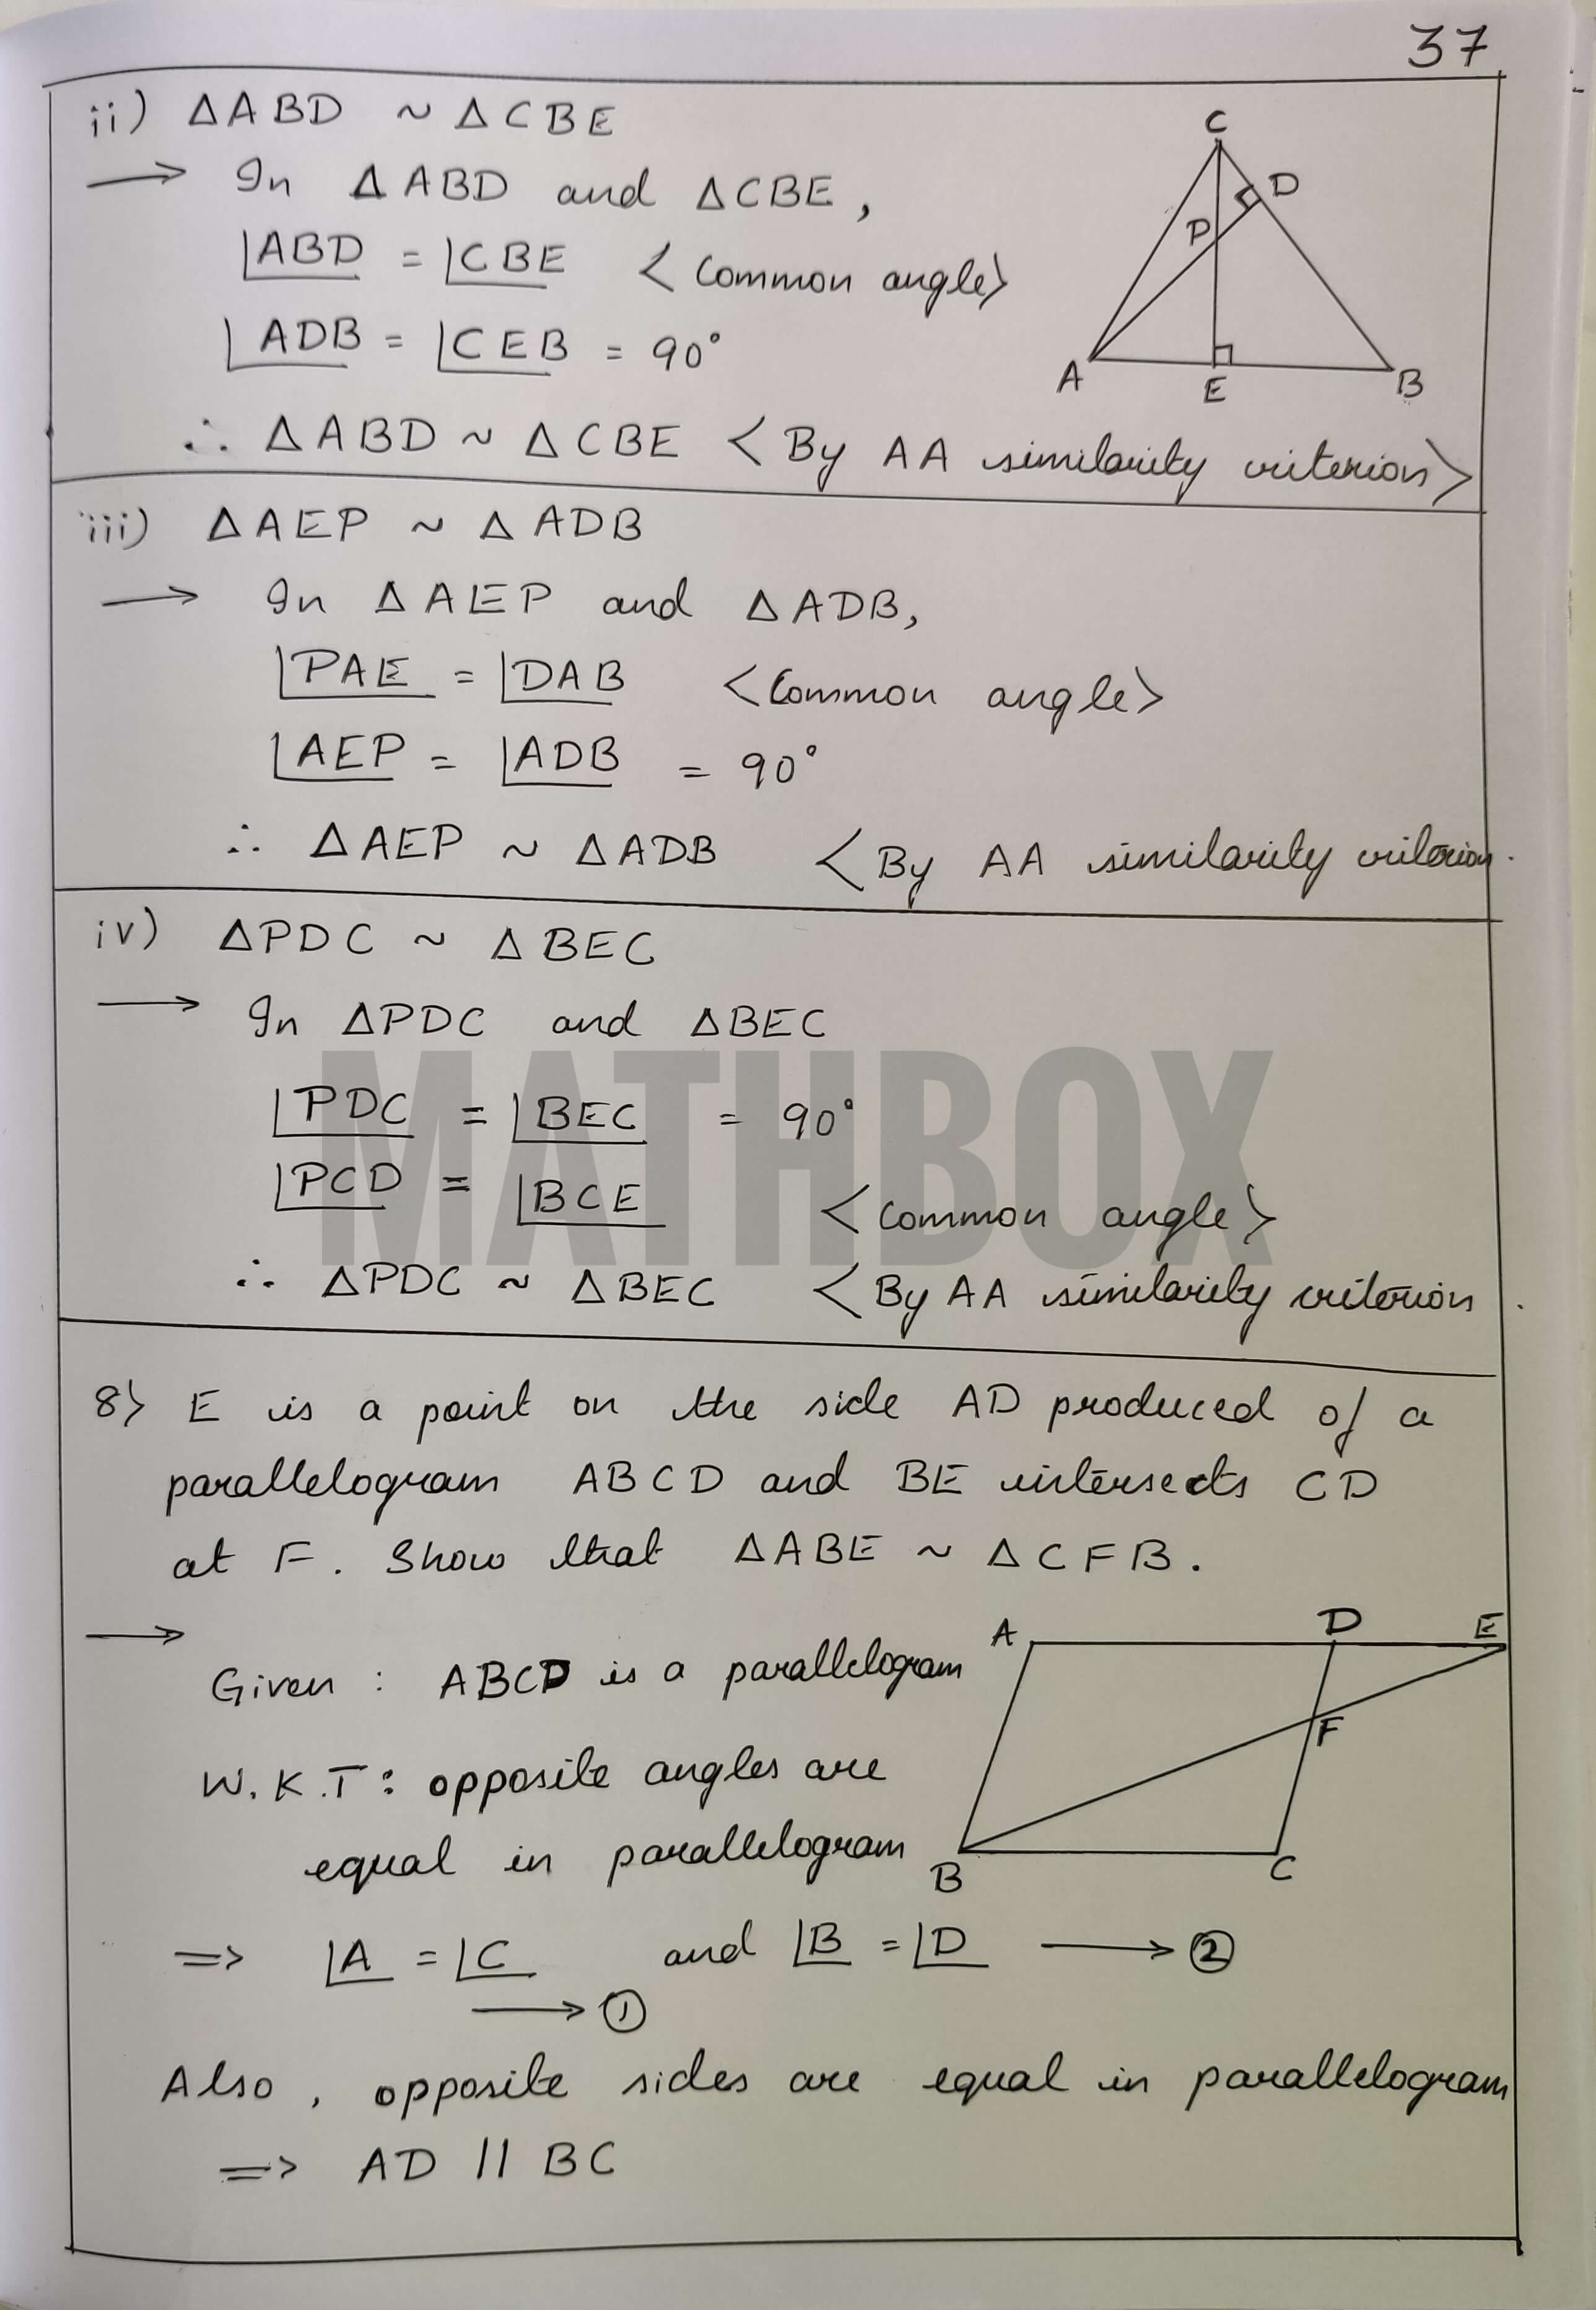 37
ii) ΔABD ~ ΔCBE
→ In ΔABD and ΔCBE,
∠ABD = ∠CBE <Common angle>
∠ADB = ∠CEB = 90°
∴ ΔABD ~ ΔCBE <By AA similarity criterion>
C
D
P
A
E
B
iii) ΔAEP ~ ΔADB
→ In ΔAEP and ΔADB,
∠PAE = ∠DAB <Common angle>
∠AEP = ∠ADB = 90°
∴ ΔAEP ~ ΔADB <By AA similarity criterion.
iv) ΔPDC ~ ΔBEC
→ In ΔPDC and ΔBEC
∠PDC = ∠BEC = 90°
∠PCD = ∠BCE <Common angle>
∴ ΔPDC ~ ΔBEC <By AA similarity criterion.
MATHBOX
8) E is a point on the side AD produced of a
parallelogram ABCD and BE intersects CD
at F. Show that ΔABE ~ ΔCFB.
→
Given : ABCD is a parallelogram
W.K.T: opposite angles are
equal in parallelogram
A
D
E
F
B
C
=> ∠A = ∠C and ∠B = ∠D → ②
→ ①
Also, opposite sides are equal in parallelogram
=> AD || BC